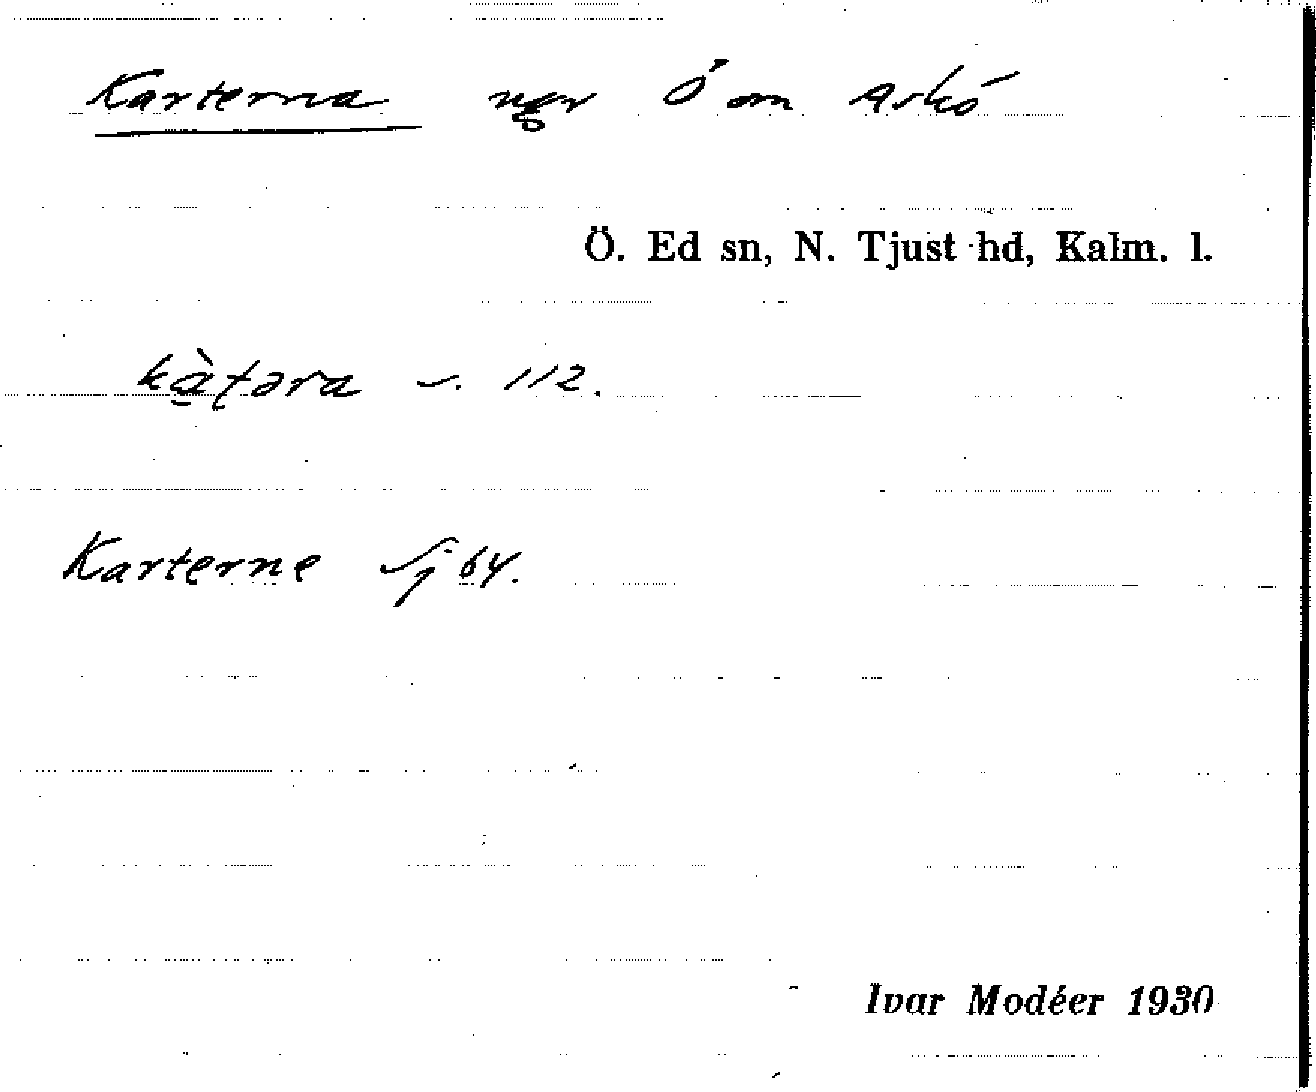 Karterna ngr Ö om Askö
Ö. Ed sn, N. Tjust hd, Kalm. l.
kàt̨əra s. 112.
Karterne Sj 64.
Ivar Modéer 1930